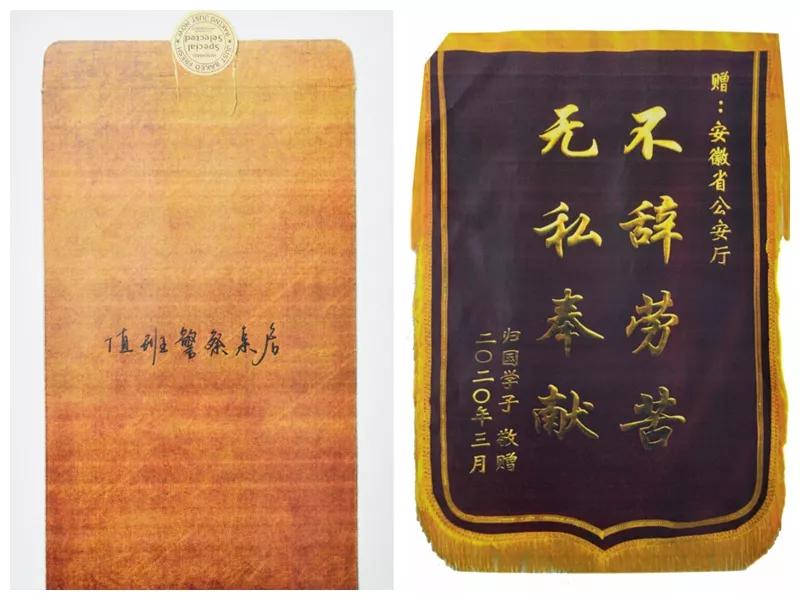 Special
Selected
JUST BAKED FRESH
BAKING JUST NOW
值班警察亲启
赠：安徽省公安厅
不辞劳苦
无私奉献
归国学子 敬赠
二〇二〇年三月